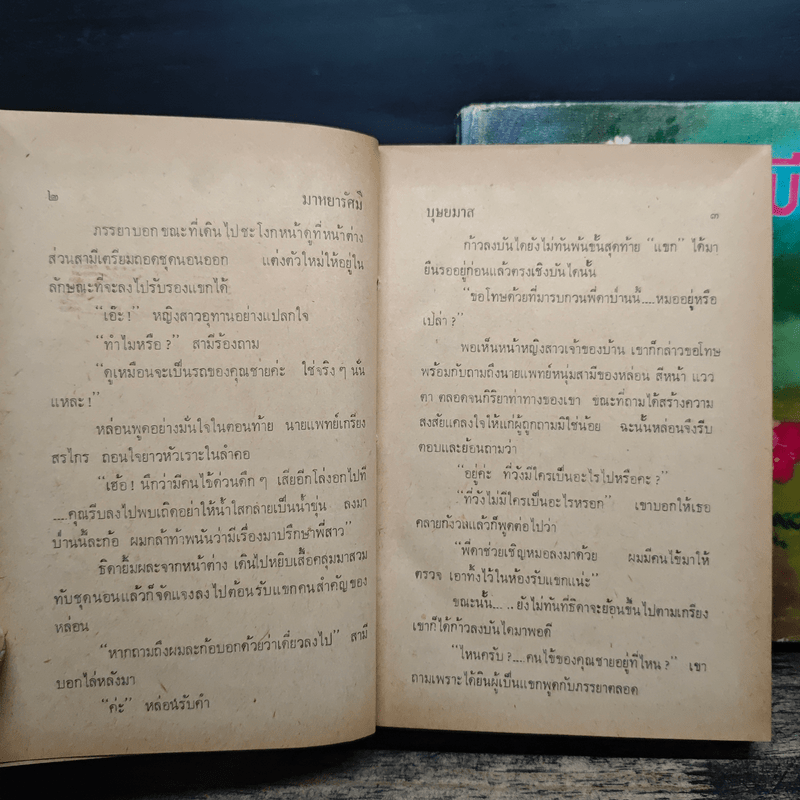 ๒ มาหยารัศมี
ภรรยาบอกขณะที่เดินไปชะโงกหน้าดูที่หน้าต่าง
ส่วนสามีเตรียมถอดชุดนอนออก แต่งตัวใหม่ให้อยู่ใน
ลักษณะที่จะลงไปรับรองแขกได้
“เอ๊ะ!” หญิงสาวอุทานอย่างแปลกใจ
“ทำไมหรือ?” สามีร้องถาม
“ดูเหมือนจะเป็นรถของคุณชายค่ะ ใช่จริงๆ นั่น
แหละ!”
หล่อนพูดอย่างมั่นใจในตอนท้าย นายแพทย์เกรียง
สรไกร ถอนใจยาวหัวเราะในลำคอ
“เฮ้อ! นึกว่ามีคนไข้ด่วนดึกๆ เสียอีกโล่งอกไปที
....คุณรีบลงไปพบเถิดอย่าให้น้ำใสกลายเป็นน้ำขุ่น ลงมา
บ้านนี้ละก้อ ผมกล้าท้าพนันว่ามีเรื่องมาปรึกษาพี่สาว”
ธิดายิ้มผละจากหน้าต่าง เดินไปหยิบเสื้อคลุมมาสวม
ทับชุดนอนแล้วก็จัดแจงลงไปต้อนรับแขกคนสำคัญของ
หล่อน
“หากถามถึงผมละก้อบอกด้วยว่าเดี๋ยวลงไป” สามี
บอกไล่หลังมา
“ค่ะ” หล่อนรับคำ
บุษยมาส ๓
ก้าวลงบันไดยังไม่ทันพ้นขั้นสุดท้าย “แขก” ได้มา
ยืนรออยู่ก่อนแล้วตรงเชิงบันไดนั้น
“ขอโทษด้วยที่มารบกวนพี่ดาบ้านนี้....หมออยู่หรือ
เปล่า?”
พอเห็นหน้าหญิงสาวเจ้าของบ้าน เขาก็กล่าวขอโทษ
พร้อมกับถามถึงนายแพทย์หนุ่มสามีของหล่อน สีหน้า แวว
ตา ตลอดจนกิริยาท่าทางของเขา ขณะที่ถามได้สร้างความ
สงสัยแคลงใจให้แก่ผู้ถูกถามมิใช่น้อย ฉะนั้นหล่อนจึงรีบ
ตอบและย้อนถามว่า
“อยู่ค่ะ ที่วังมีใครเป็นอะไรไปหรือคะ?”
“ที่วังไม่มีใครเป็นอะไรหรอก” เขาบอกให้เธอ
คลายกังวลแล้วก็พูดต่อไปว่า
“พี่ดาช่วยเชิญหมอลงมาด้วย ผมมีคนไข้มาให้
ตรวจ เอาทิ้งไว้ในห้องรับแขกแน่ะ”
ขณะนั้น.....ยังไม่ทันที่ธิดาจะย้อนขึ้นไปตามเกรียง
เขาก็ได้ก้าวลงบันไดมาพอดี
“ไหนครับ?....คนไข้ของคุณชายอยู่ที่ไหน?” เขา
ถามเพราะได้ยินผู้เป็นแขกพูดกับภรรยาตลอด